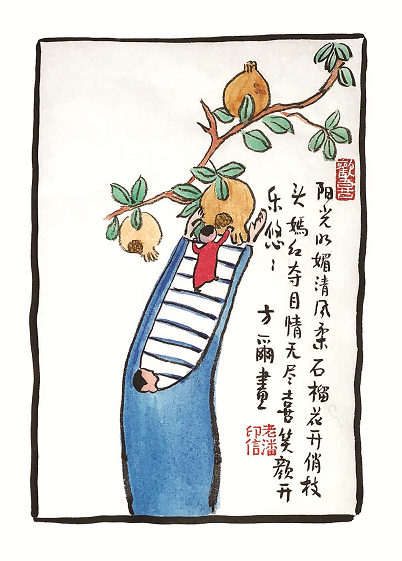 阳光明媚清风柔石榴花开俏枝
头嫣红夺目情无尽喜笑颜开
乐悠〻
方爾畫
老潘
印信